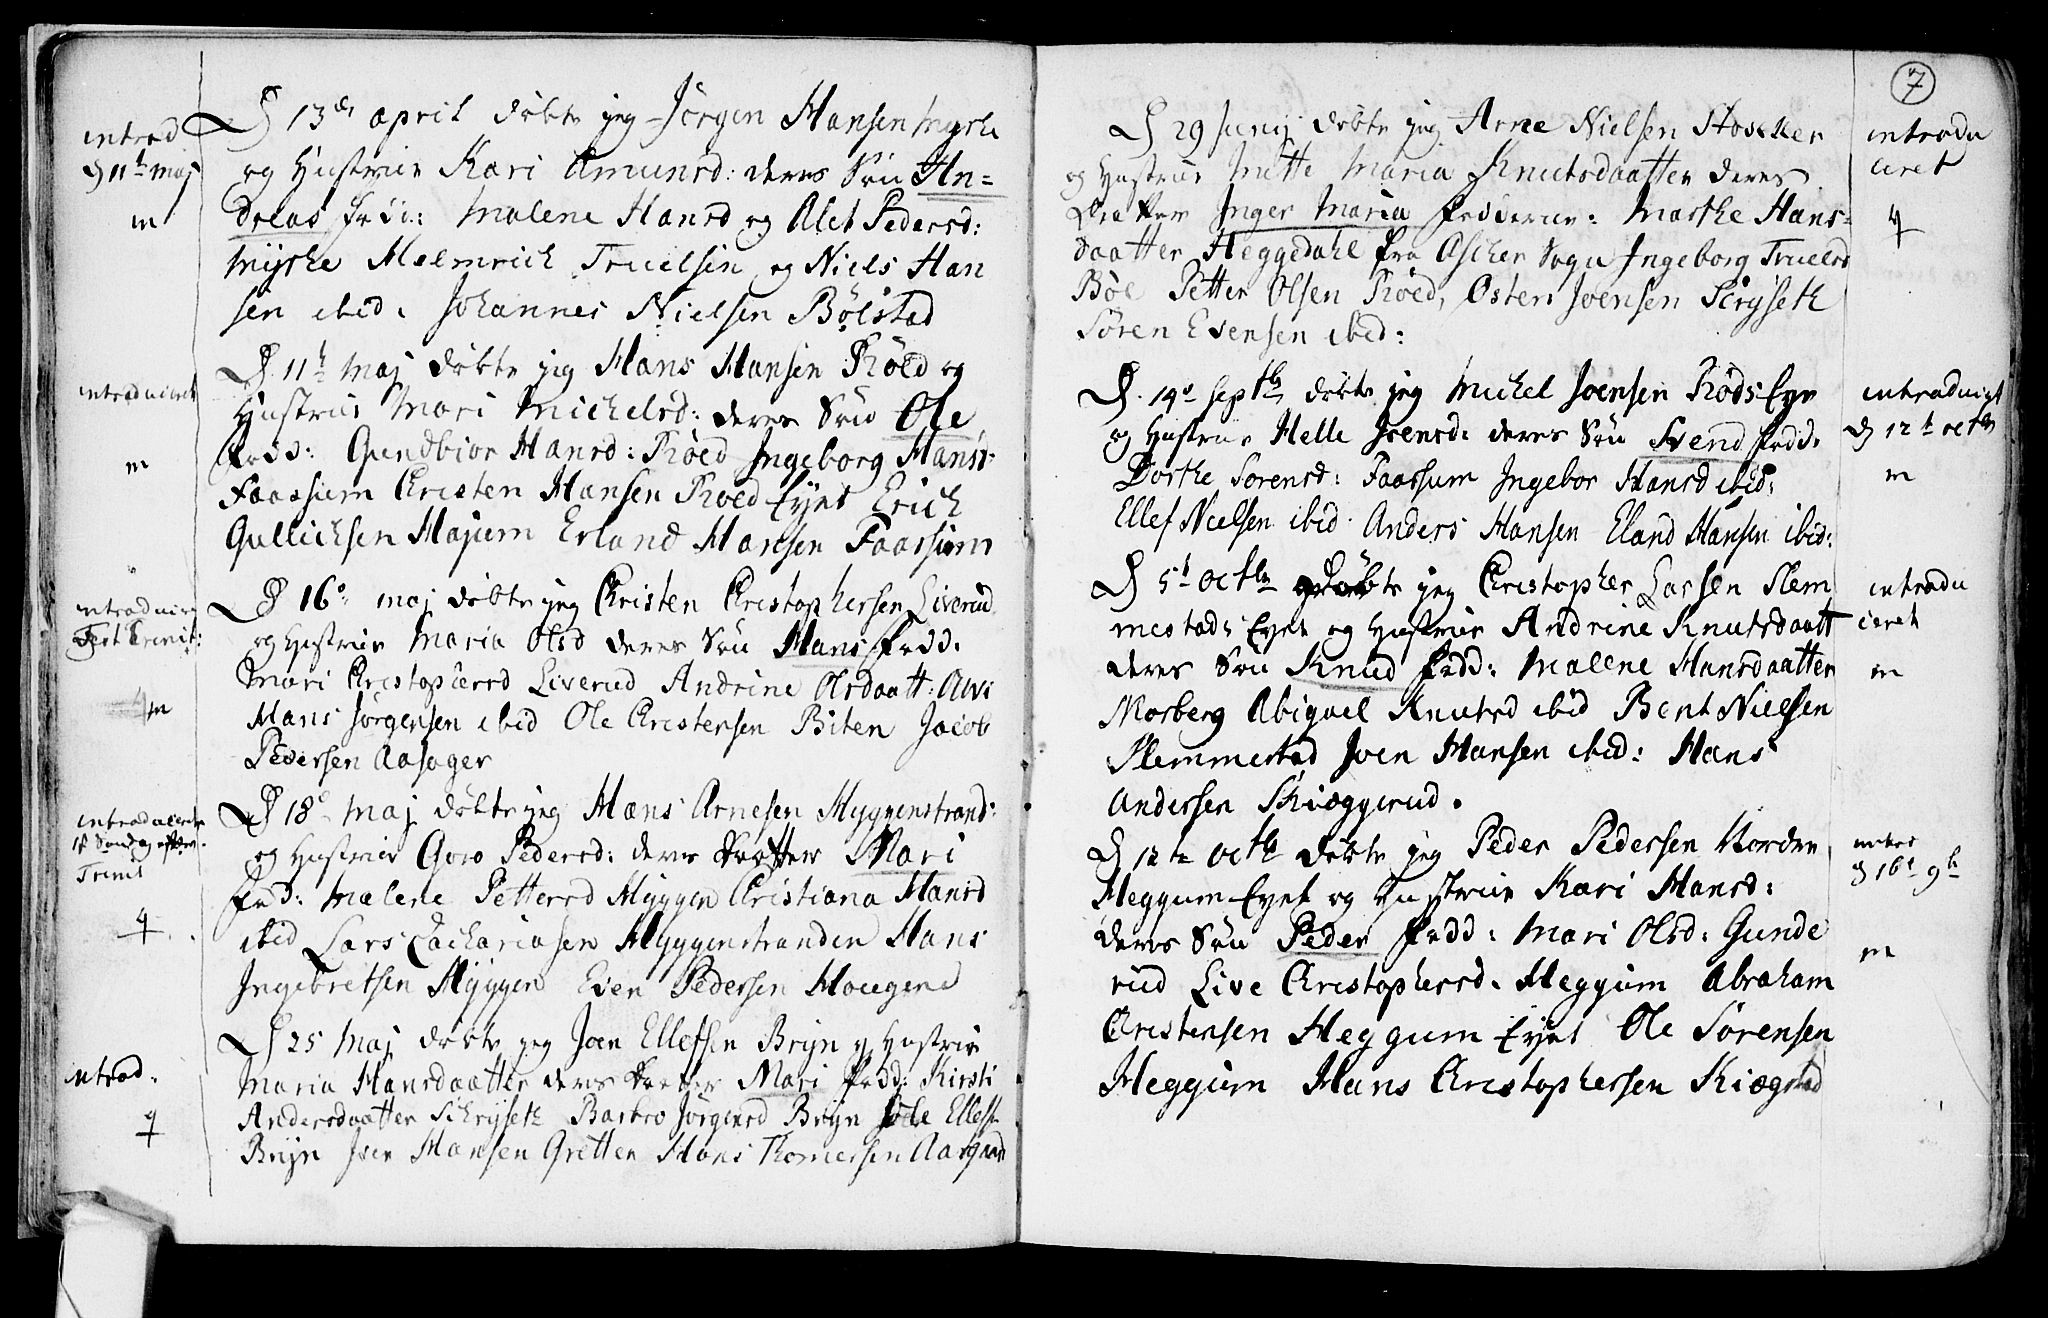 introd
D 11te maj
m
D 13de april döbte jeg Jörgen Hansen Myrhe
og Hustrue Kari Amunsd: deres Sön An=
dreas Fadd: Malene Hansd og Alet Pedersd:
Myrhe Helmrich Truelsen og Niels Han
sen ibid. Johannes Nielsen Bölstad
introduceret
m
D. 11te Maj döbte jeg Hans Hansen Röed og
Hustrue Mari Michelsd: deres Sön Ole
Fadd: Gundbior Hansd: Röed Ingeborg Hansd
Faassum Christen Hansen Roed Eyet Erich
Gullichsen Hajum Erland Hansen Faassum
introducir
Fest Trinit:
m
D 16de maj döbte jeg Christen Christophersen Liverud
og Hustrue Maria Olsd deres Sön Hans Fadd.
Mari Christophersd Liverud Andrine Olsdaatt:
Hans Jörgensen ibid Ole Christensen Biten Jacob
Pedersen Aasager
introduceret
1te Søndag efter
Trinit
q
D 18de Maj döbte jeg Hans Arnesen Hyggenstrand:
og Hustrue Goro Pedersd: deres Datter Mari
Fadd: Malene Pettersd Hyggen Christiana Hansd
ibid Lars Zachariasen Hyggenstranden Hans
Ingebretsen Hyggen Even Pedersen Hougene
introd.
q
D 25 Maj döbte jeg Joen Ellefsen Bryn og Hustrue
Maria Hansdaatter deres Datter Mari Fadd: Kirsti
Andersdaatter Schryseth Barbro Jörgensd Bryn Ellefs
Bryn Iver Hansen Gretten Hans Thomessen Aasgrud
7
D 29 Junij döbte jeg Arne Nielsen Stocker
og Hustrue Mette Maria Knutsdaatter deres
Datter Inger Maria Fadderne: Marthe Hans=
daatter Heggedahl fra Ascher Sogn Ingeborg Truelsd
Böe Petter Olsen Röed, Osten Joensen Scryseth
Sören Evensen ibid:
introdu
ceret
q
D. 19de Septbr döbte jeg Michel Joensen Röds Eye
og Hustrue Helle Joensd: deres Sön Svend Fadd.
Dorthe Sorensd: Faassum Ingebor Hansd ibid:
Ellef Nielsen ibid Anders Hansen Eland Hansen ibid:
introducirt
D 12te octbr
m
D 5te Octbr döbte jeg Christopher Larsen Slem
mestads Eyet og Hustrue Andrine Knutsdaatt
deres Sön Knud Fadd: Malene Hansdaatter
Morberg Abiguel Knutsd ibid Bent Nielsen
Slemmestad Joen Hansen ibid: Hans
Andersen Skiæggerud.
introdu
ceret
m
D 12te Octbr döbte jeg Peder Pedersen Nordre
Heggum Eyet og Hustrue Kari Hansd:
deres Sön Peder Fadd: Mari Olsd: Gunde
rud Live Christophersd. Heggum Abraham
Christensen Heggum Eyet Ole Sörensen
Heggum Hans Christophersen Skiægstad
introd
D 16de 9br
m